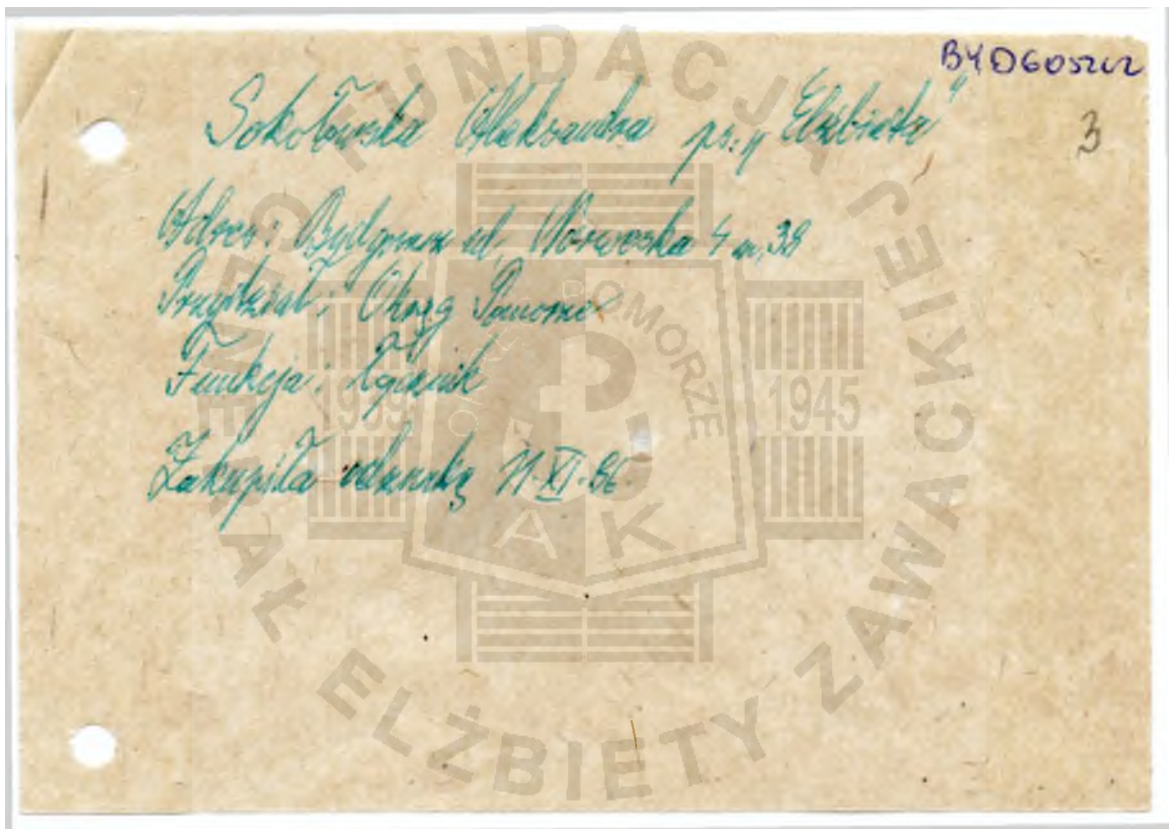 BYDGOSZCZ
3
Sokołowska Aleksandra ps. „Elżbieta"
Adres: Bydgoszcz ul. 4 m. 38
Przydział: Okręg Pomorze
Funkcja: Łącznik
Zakupiła odznakę 11-XI-86
FUNDACJA GENERAŁ ELŻBIETY ZAWACKIEJ
POMORZE
1939
1945
AK